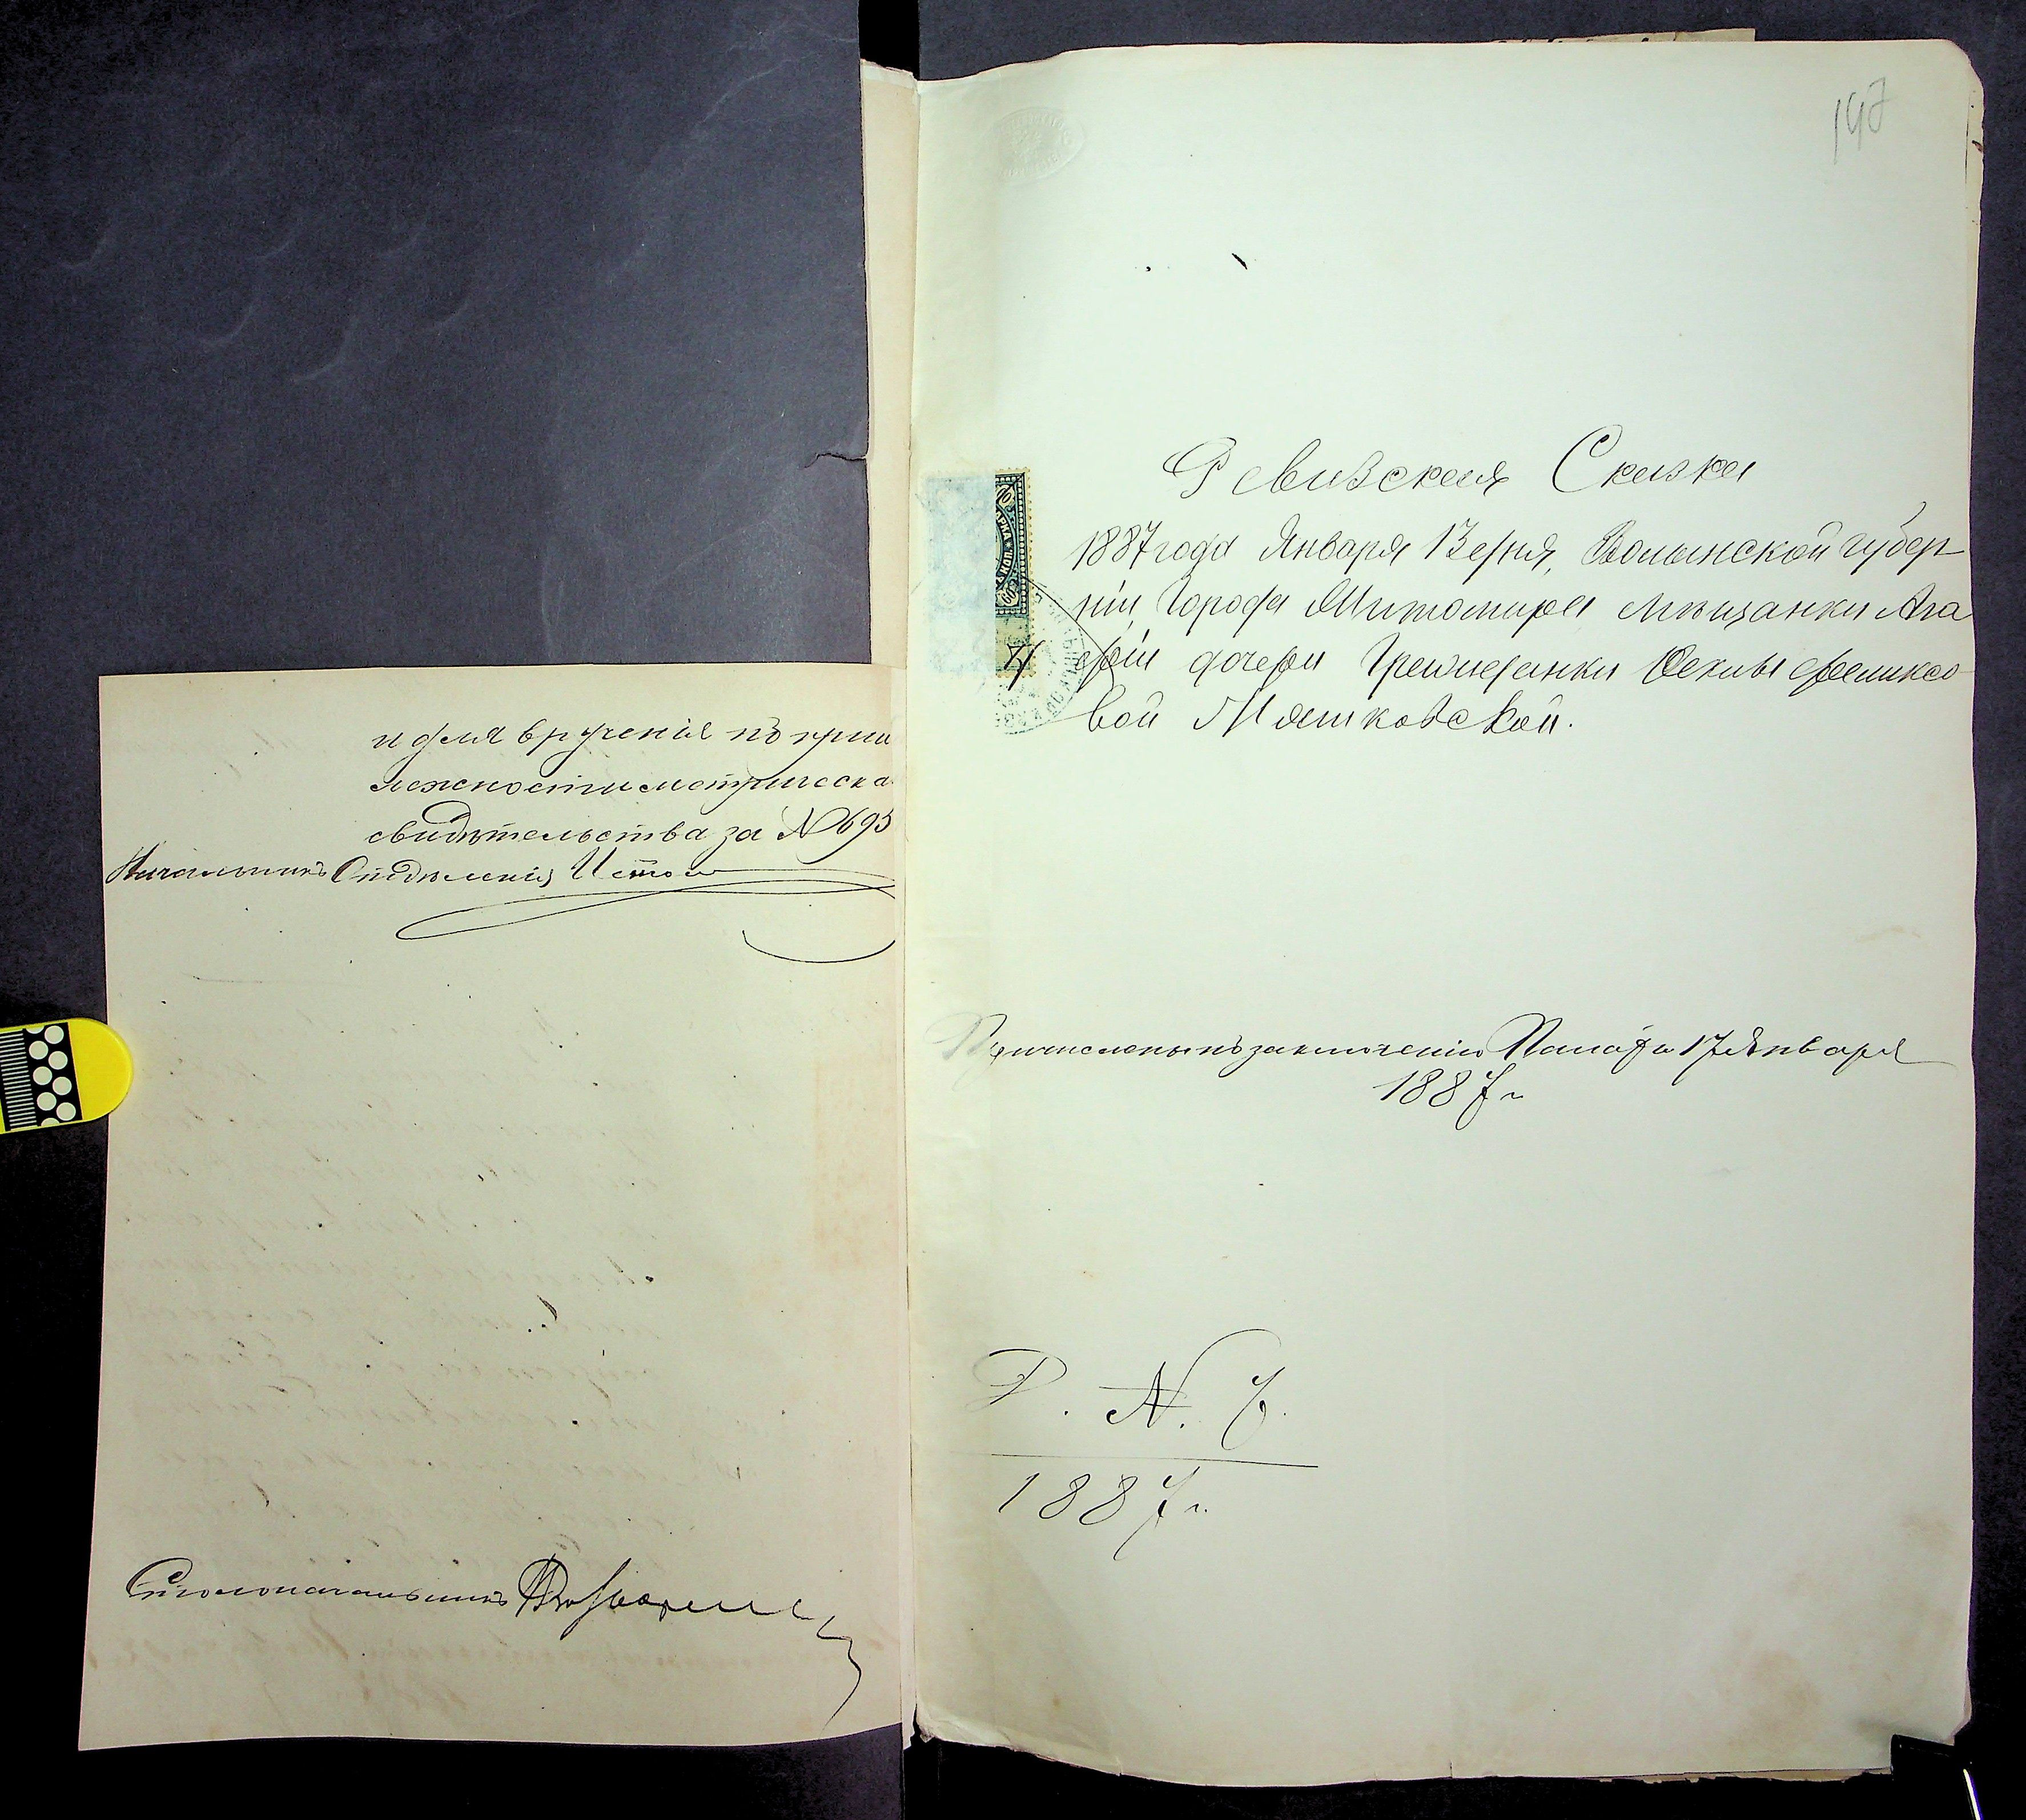 и для вручения по прина
лежности метрическа
свидѣтельства за № 695
Начальникъ Отдѣленія
Столоначальникъ
197
Ревизская Сказка
1887 года Января 13 дня, Волынской губер
ніи, Города Житомира Мѣщанки
дочери Гражданки Феликсо
вой
Причислены по заключенію Палаты 17 Января
1887 г.
Р. N. 7.
1887 г.